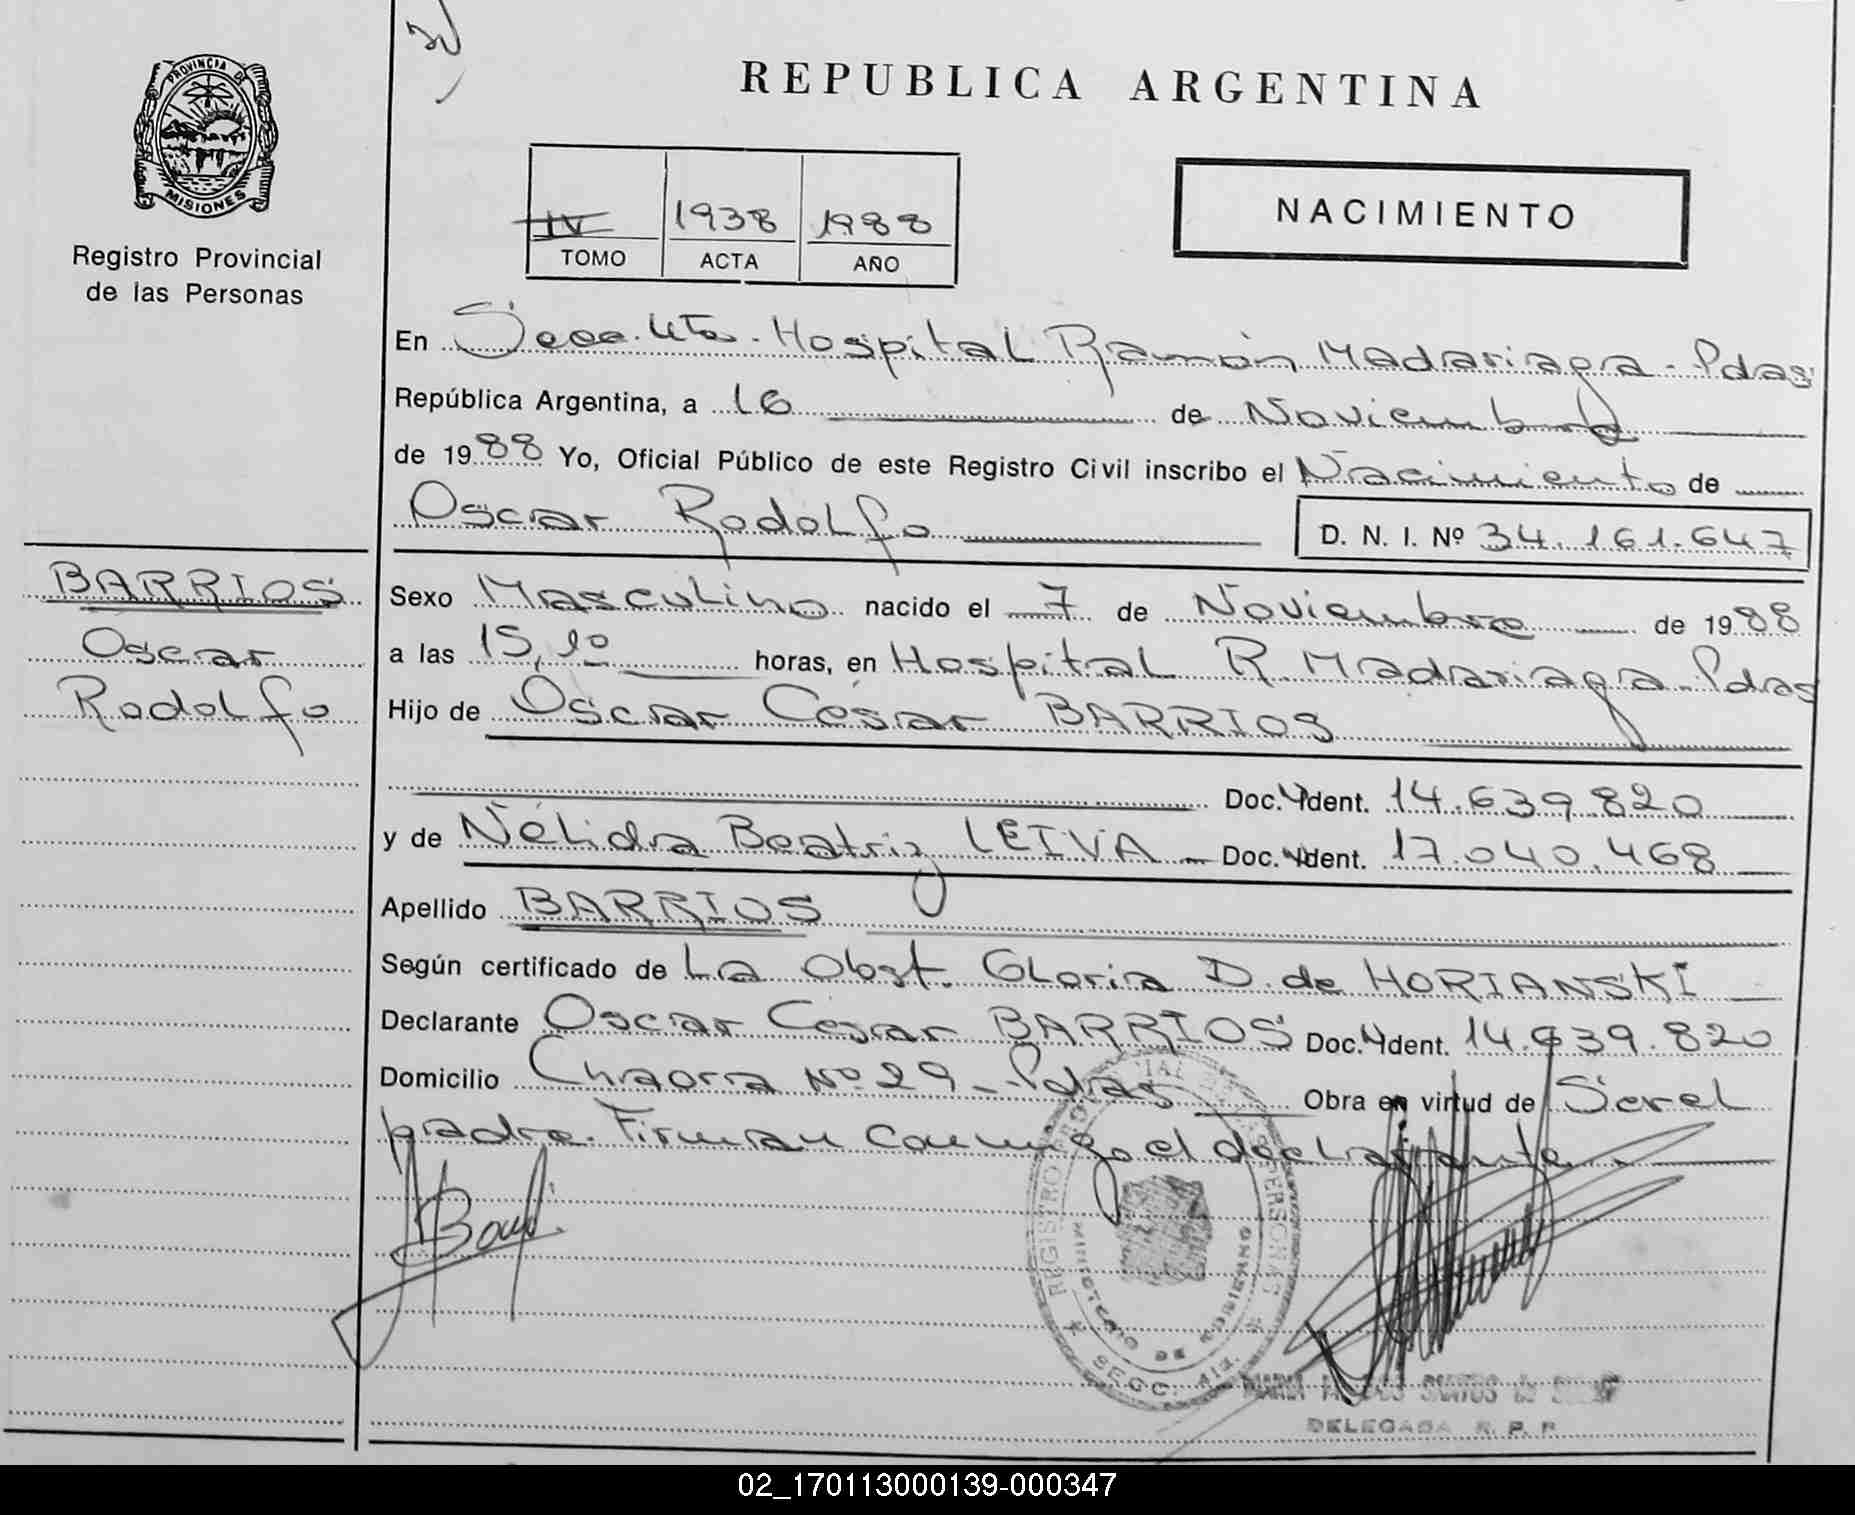 PROVINCIA DE
MISIONES
Registro Provincial
de las Personas
REPUBLICA ARGENTINA
IV 1938 1988
TOMO ACTA AÑO
NACIMIENTO
En Secc. 4ta. Hospital Ramón Madariaga - Pdas
República Argentina, a 16 de Noviembre
de 1988 Yo, Oficial Público de este Registro Civil inscribo el Nacimiento de
Oscar Rodolfo D. N. I. Nº 34.161.647
BARRIOS
Oscar
Rodolfo
Sexo Masculino nacido el 7 de Noviembre de 1988
a las 15,10 horas, en Hospital R. Madariaga - Pdas
Hijo de Oscar César BARRIOS
Doc. Ident. 14.639.820
y de Nélida Beatriz LEIVA - Doc. Ident. 17.040.468
Apellido BARRIOS
Según certificado de La Obst. Gloria D. de HORIANSKI
Declarante Oscar César BARRIOS Doc. Ident. 14.639.820
Domicilio Chacra Nº 29 - Pdas Obra en virtud de Ser el
padre. Firman conmigo el declarante.
REGISTRO PROVINCIAL DE LAS PERSONAS
MINISTERIO DE GOBIERNO
SECC. 4ta.
DELEGADA R. P. P.
02_170113000139-000347